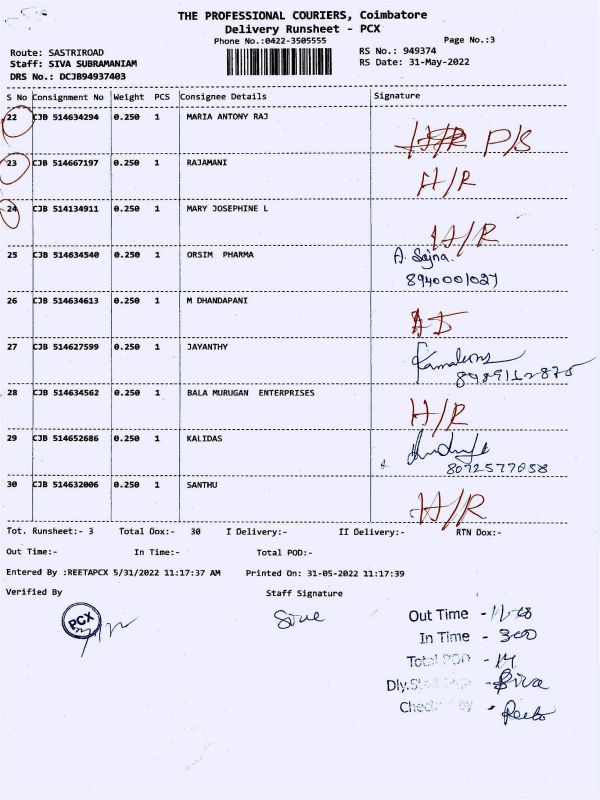 THE PROFESSIONAL COURIERS, Coimbatore
Delivery Runsheet - PCX
Phone No.:0422-3505555
Page No.:3
Route: SASTRIROAD
RS No.: 949374
Staff: SIVA SUBRAMANIAM
RS Date: 31-May-2022
DRS No.: DCJB94937403
S No Consignment No Weight PCS Consignee Details Signature
22 CJB 514634294 0.250 1 MARIA ANTONY RAJ P/S
23 CJB 514667197 0.250 1 RAJAMANI H/R
24 CJB 514134911 0.250 1 MARY JOSEPHINE L H/R
25 CJB 514634540 0.250 1 ORSIM PHARMA A. Sajna.
8940001027
26 CJB 514634613 0.250 1 M DHANDAPANI
27 CJB 514627599 0.250 1 JAYANTHY
28 CJB 514634562 0.250 1 BALA MURUGAN ENTERPRISES H/R
29 CJB 514652686 0.250 1 KALIDAS
8072577058
30 CJB 514632006 0.250 1 SANTHU H/R
Tot. Runsheet:- 3 Total Dox:- 30 I Delivery:- II Delivery:- RTN Dox:-
Out Time:- In Time:- Total POD:-
Entered By :REETAPCX 5/31/2022 11:17:37 AM Printed On: 31-05-2022 11:17:39
Verified By Staff Signature
PCX
Out Time -
In Time - 300
Total POD - 14
Dly.St - Siva
Check By - Reeta